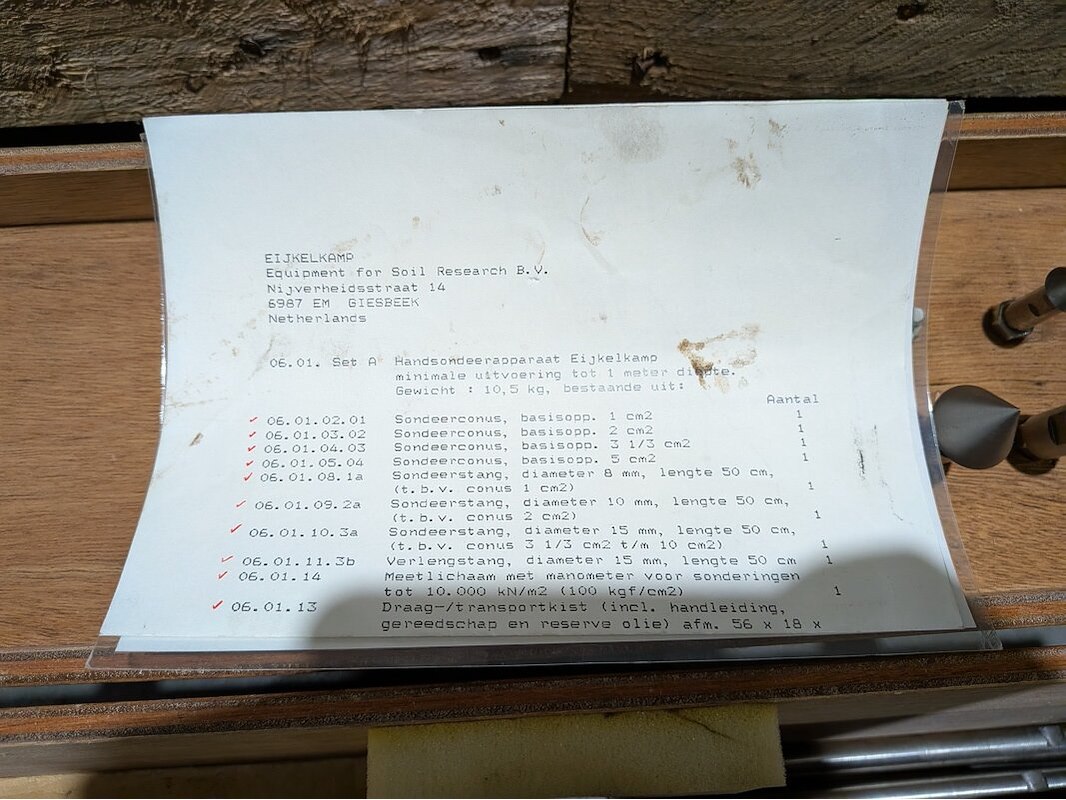 EIJKELKAMP
Equipment for Soil Research B.V.
Nijverheidsstraat 14
6987 EM GIESBEEK
Netherlands
06.01. Set A Handsondeerapparaat Eijkelkamp
minimale uitvoering tot 1 meter diepte.
Gewicht : 10,5 kg, bestaande uit:
Aantal
06.01.02.01 Sondeerconus, basisopp. 1 cm2 1
06.01.03.02 Sondeerconus, basisopp. 2 cm2 1
06.01.04.03 Sondeerconus, basisopp. 3 1/3 cm2 1
06.01.05.04 Sondeerconus, basisopp. 5 cm2 1
06.01.08.1a Sondeerstang, diameter 8 mm, lengte 50 cm,
(t.b.v. conus 1 cm2) 1
06.01.09.2a Sondeerstang, diameter 10 mm, lengte 50 cm,
(t.b.v. conus 2 cm2) 1
06.01.10.3a Sondeerstang, diameter 15 mm, lengte 50 cm,
(t.b.v. conus 3 1/3 cm2 t/m 10 cm2) 1
06.01.11.3b Verlengstang, diameter 15 mm, lengte 50 cm 1
06.01.14 Meetlichaam met manometer voor sonderingen
tot 10.000 kN/m2 (100 kgf/cm2) 1
06.01.13 Draag-/transportkist (incl. handleiding,
gereedschap en reserve olie) afm. 56 x 18 x